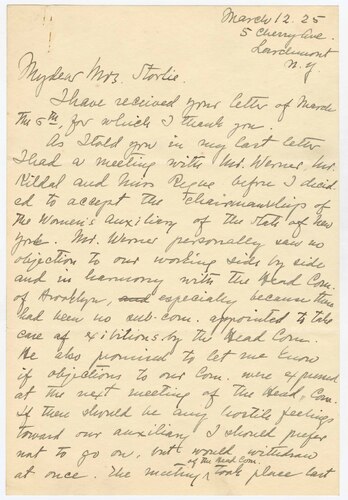 March 12. 25
5 Cherry Ave.
Larchmont
N.Y.
My dear Mrs. Storlie.
I have received your letter of March
the 5th, for which I thank you.
As I told you in my last letter
I had a meeting with Mr. Werner, Mr.
Kildal and Miss before I decid
ed to accept the Chairmanship of
the Women's Auxiliary of the State of New
York. Mr. Werner personally saw no
objection to our working side by side
and in harmony with the Head Com.
of Brooklyn, and especially because there
had been no sub-com. appointed to take
care of exibitions by the Head Com.
He also promised to let me know
if objections to our Com. were expressed
at the next meeting of the Head Com.
If there should be any hostile feelings
toward our auxiliary I should prefer
not to go on, but would withdraw
at once. The meeting of the Head Com. took place last